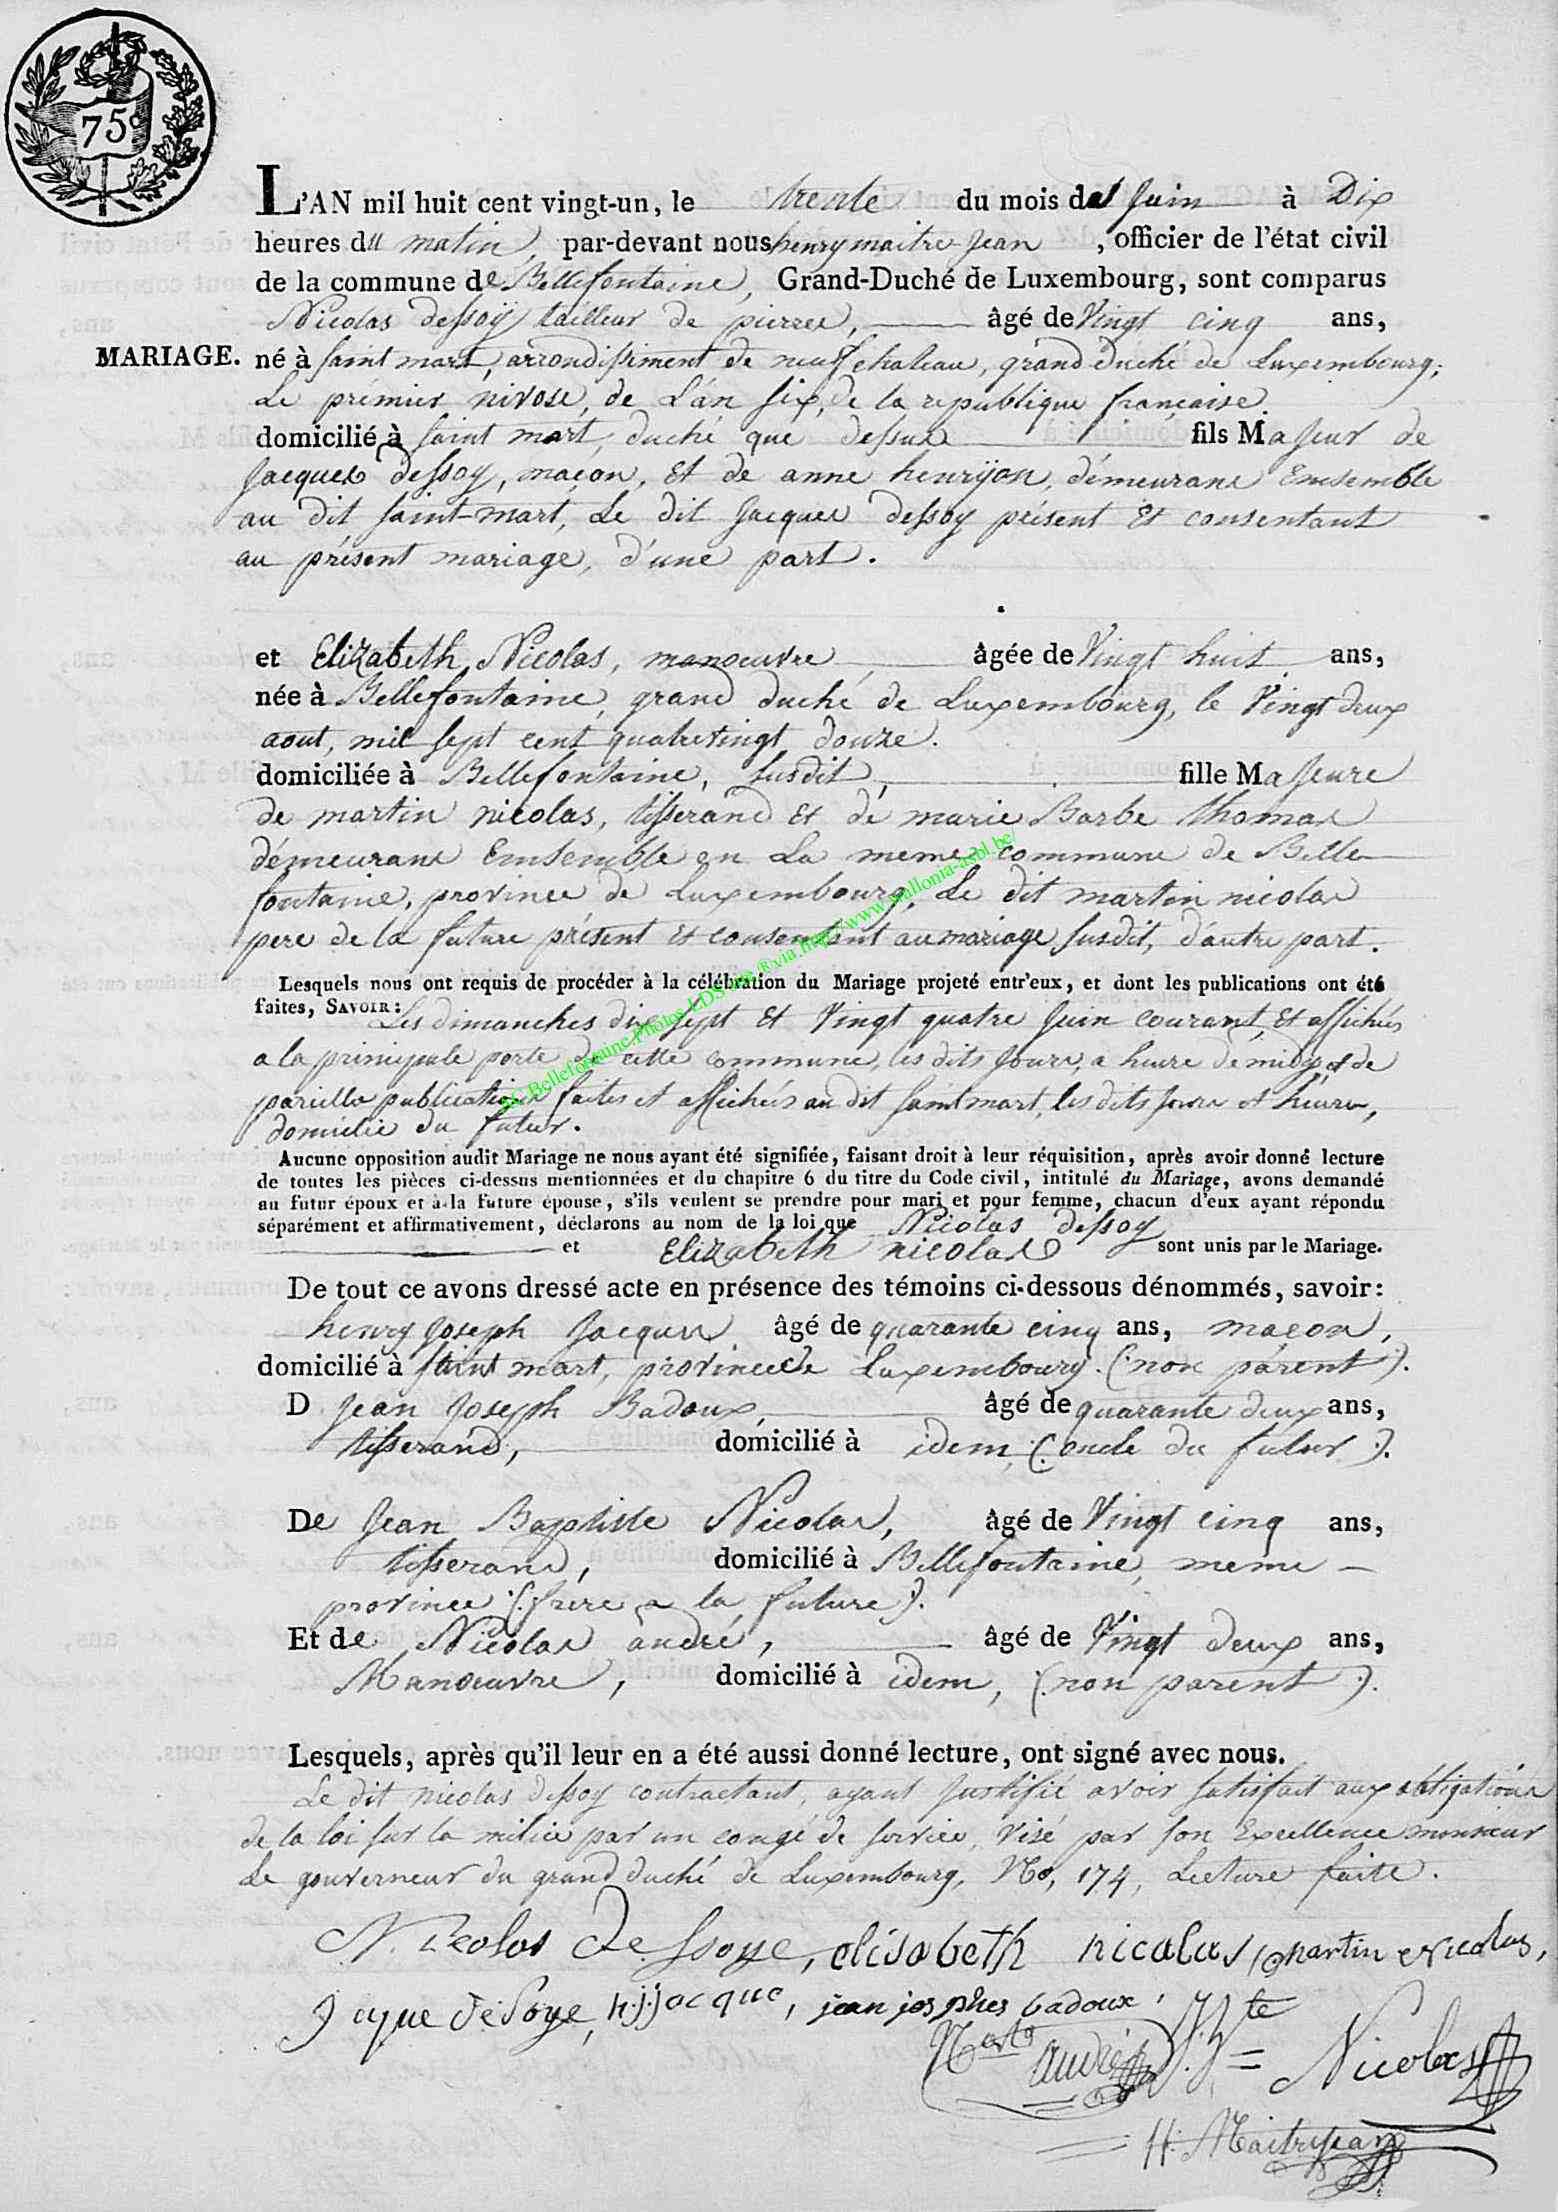 75c
L'AN mil huit cent vingt-un, le trente du mois de Juin à Dix
heures du matin, par-devant nous henry maitre Jean, officier de l'état civil
de la commune de Bellefontaine, Grand-Duché de Luxembourg, sont comparus
Nicolas dessoÿ tailleur de pierres, âgé de Vingt cinq ans,
MARIAGE. né à saint mart, arrondissiment de neufchateau, grand duché de Luxembourg;
Le prémier nivose, de L'an six, de la republique française.
domicilié à saint mart, duché que dessus fils Majeur de
Jacques dessoy, maçon, Et de anne henrÿon, démeurans Emsemble
au dit saint-mart, Le dit Jacques dessoy présent Et consentant
au présent mariage, d'une part.
et Elizabeth Nicolas, manoeuvre, âgée de Vingt huit ans,
née à Bellefontaine, grand duché de Luxembourg, le Vingt deux
aout, mil sept cent quatrevingt douze.
domiciliée à Bellefontaine, susdit, fille Majeure
de martin nicolas, tisserand Et de marie Barbe thomas
démeurans Emsemble en La meme commune de Belle
fontaine, province de Luxembourg, Le dit martin nicolas
pere de la future présent Et consentant au mariage susdit, d'autre part.
Lesquels nous ont requis de procéder à la célébration du Mariage projeté entr'eux, et dont les publications ont été
faites, SAVOIR:
Les dimanches dix sept Et Vingt quatre Juin courant, Et affichés
a la principale porte de cette commune, les dits Jours, a heure de midy, et de
pareille publication faites et affichés au dit saint mart, les dits jours et heure,
domicile du futur.
AC Bellefontaine Photos LDS.org ® via http://www.wallonia-asbl.be/
Aucune opposition audit Mariage ne nous ayant été signifiée, faisant droit à leur réquisition, après avoir donné lecture
de toutes les pièces ci-dessus mentionnées et du chapitre 6 du titre du Code civil, intitulé du Mariage, avons demandé
au futur époux et à la future épouse, s'ils veulent se prendre pour mari et pour femme, chacun d'eux ayant répondu
séparément et affirmativement, déclarons au nom de la loi que Nicolas dessoy
et Elizabeth nicolas sont unis par le Mariage.
De tout ce avons dressé acte en présence des témoins ci-dessous dénommés, savoir:
henry Joseph Jacques âgé de quarante cinq ans, maçon,
domicilié à saint mart, province de Luxembourg. (: non parent :).
D Jean Joseph Badoux, âgé de quarante deux ans,
tisserand, domicilié à idem, (: oncle du futur :).
De Jean Baptiste Nicolas, âgé de Vingt cinq ans,
tisserand, domicilié à Bellefontaine, meme
province (: frere a la future :).
Et de Nicolas andré, âgé de Vingt deux ans,
Manœuvre, domicilié à idem, (: non parent :).
Lesquels, après qu'il leur en a été aussi donné lecture, ont signé avec nous.
Le dit nicolas dessoy contractant, ayant Justifié avoir satisfait aux obligations
de la loi sur la milice par un congé de service, Visé par son Excellence monsieur
Le gouverneur du grand duché de Luxembourg, No, 174, Lecture faite.
Nicolas Dessoye, elisabeth nicalas, martin Nicolas,
Jaque deSoye, h:j:jacque, jean josphes badoux,
Nas andré J. Bte = Nicolas
H: Maitrejean